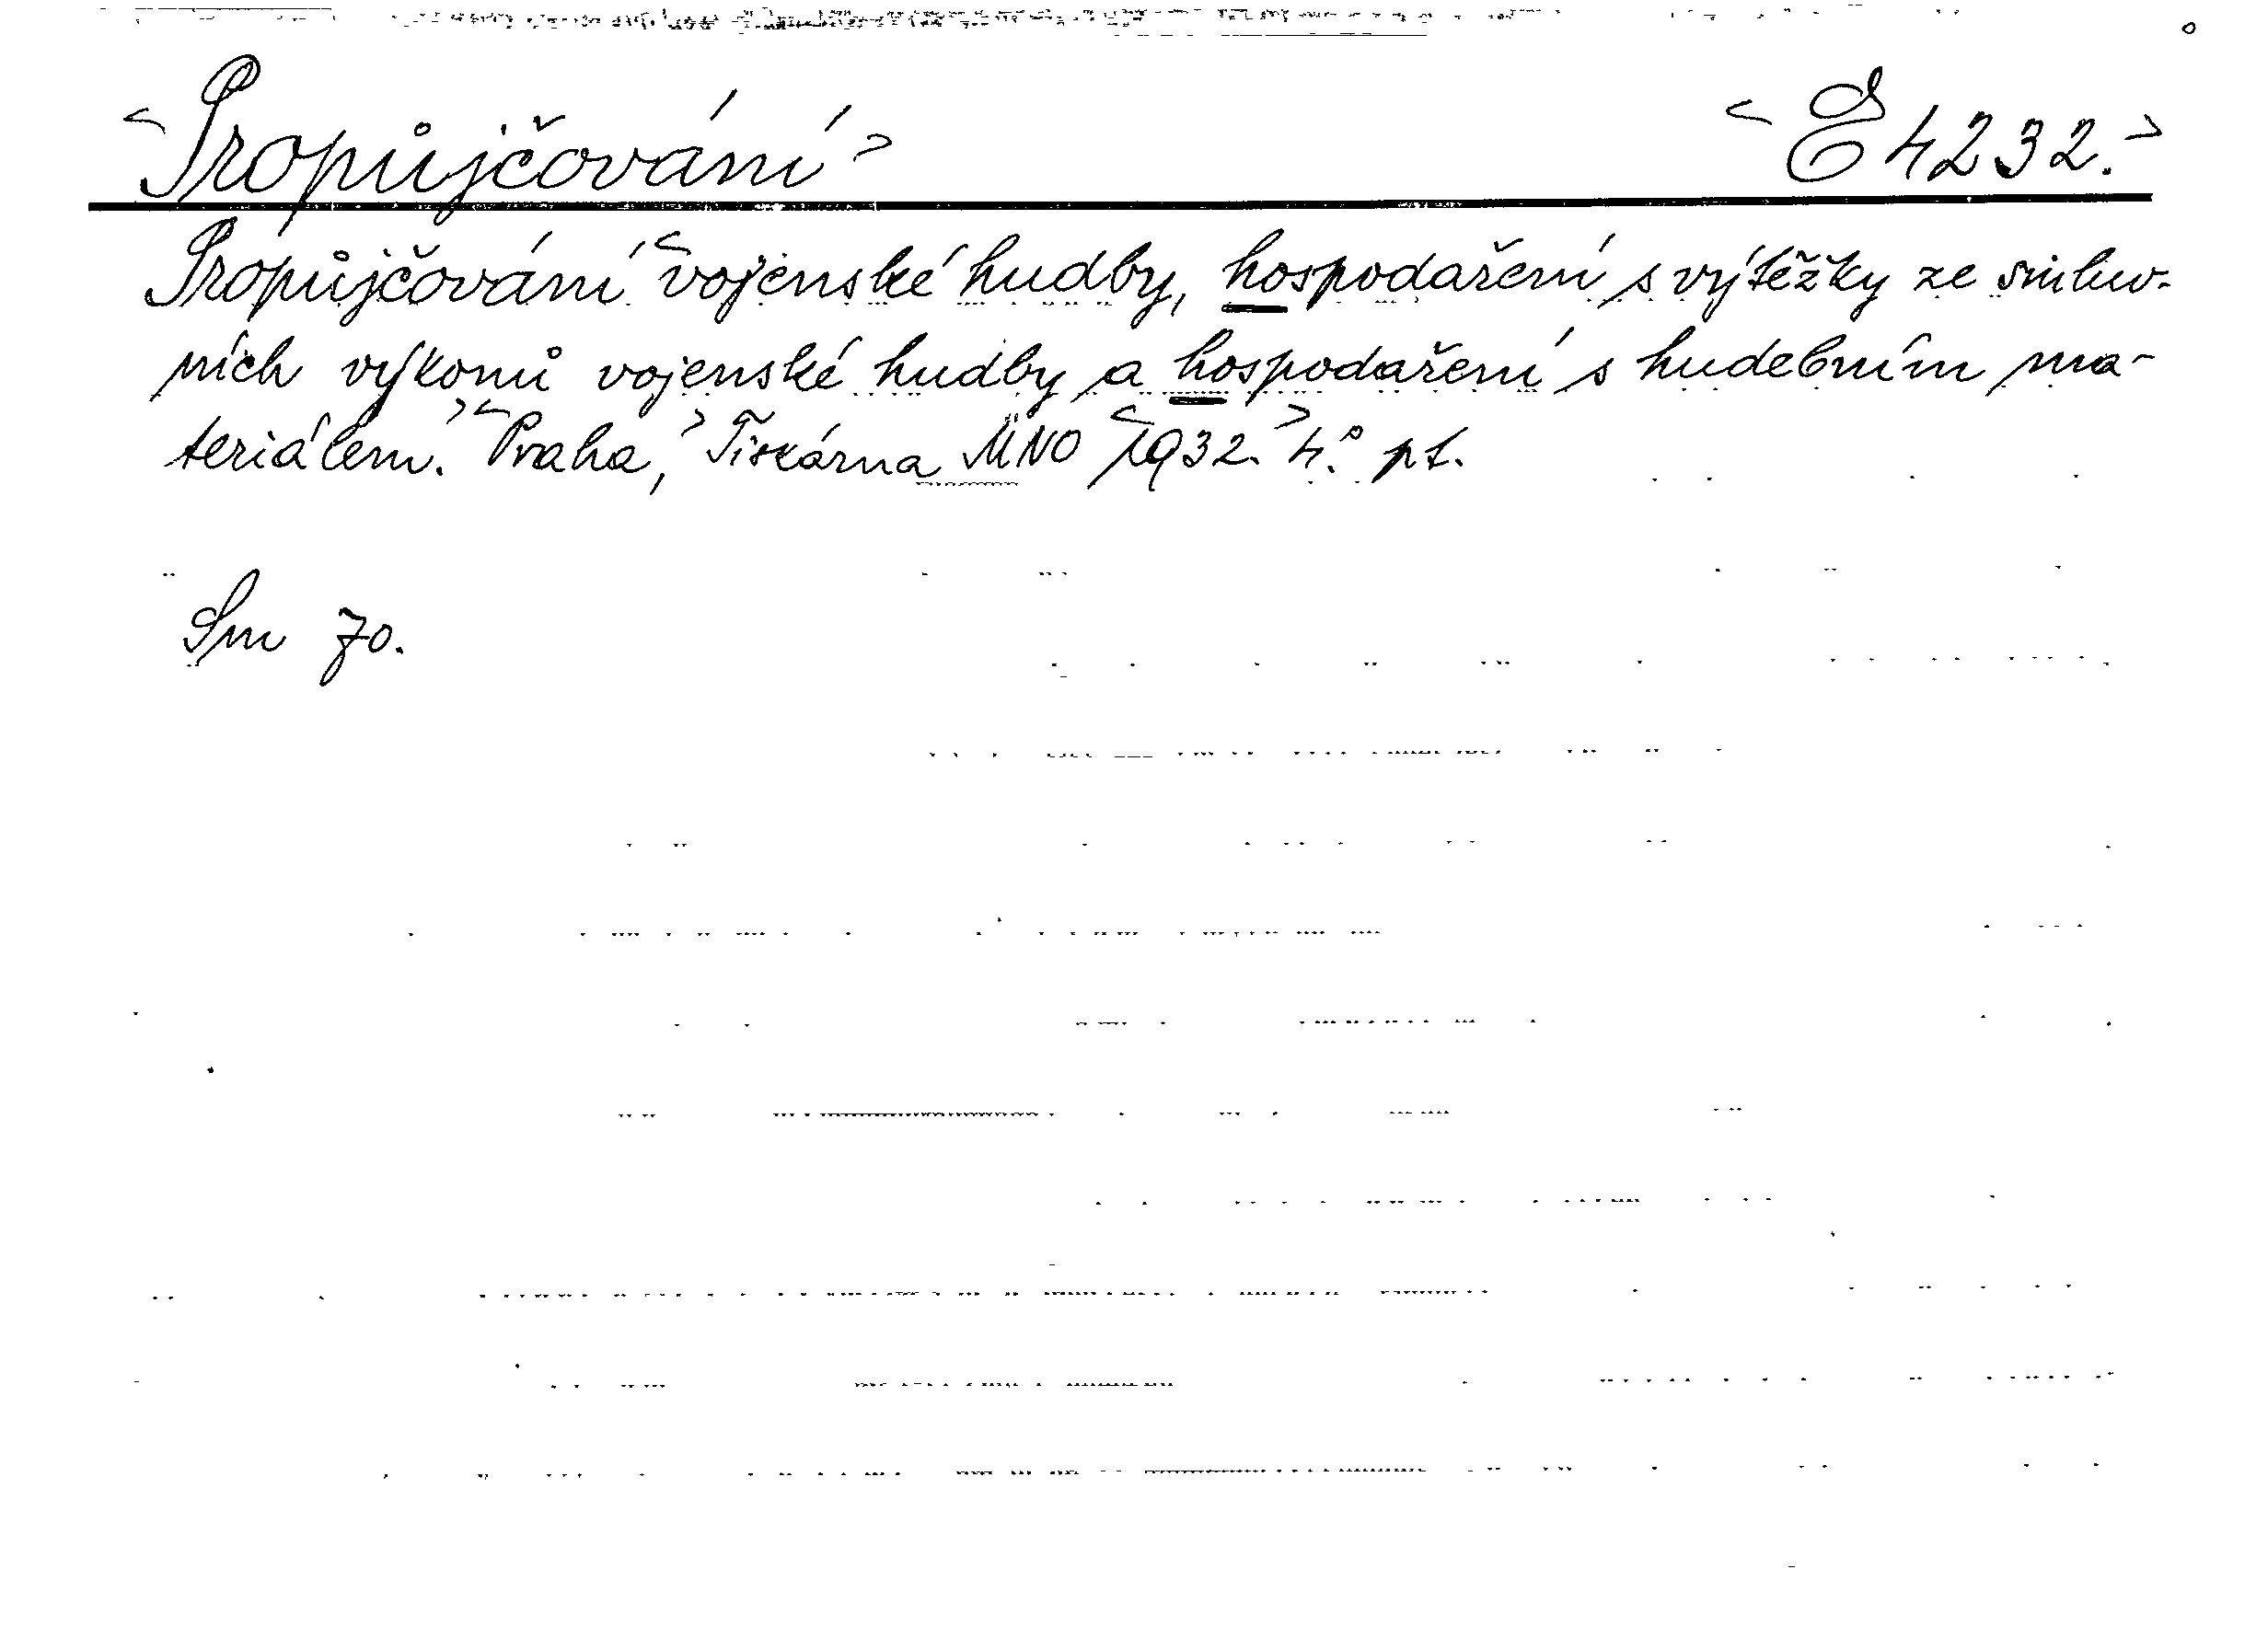 Propůjčování E 4232.
Propůjčování vojenské hudby, hospodaření s výtěžky ze smluv-
ních výkonů vojenské hudby a hospodaření s hudebním ma-
teriálem. Praha, Tiskárna MNO 1932. 4.° pt.
Sm 70.